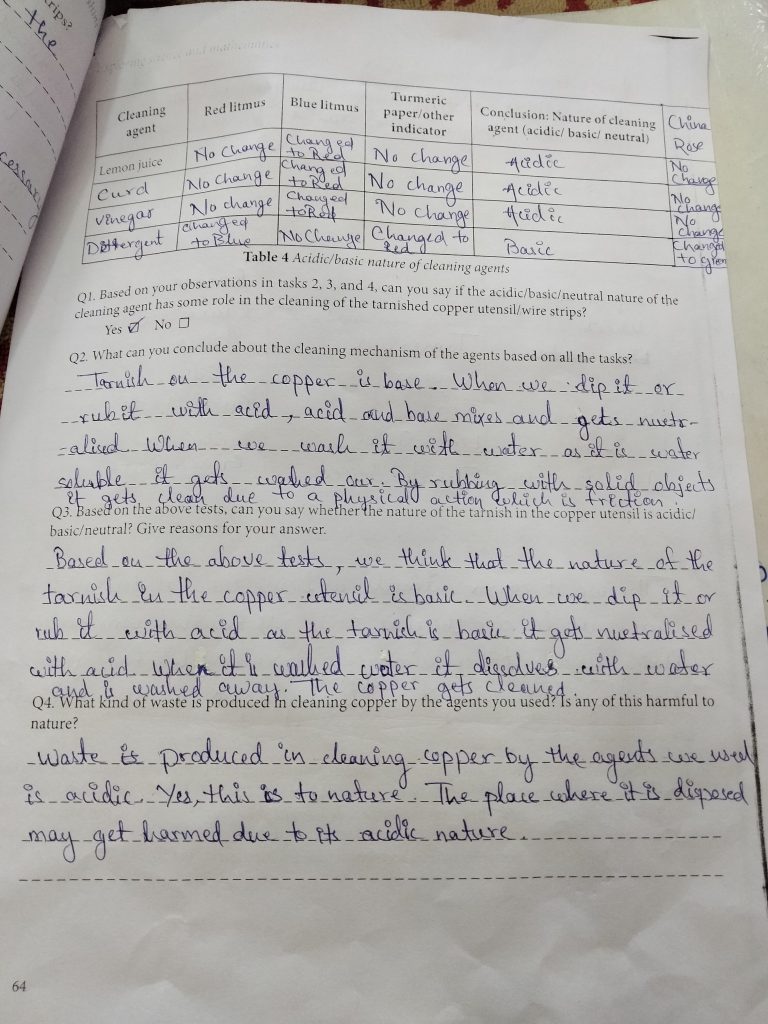 trips?
the
cessary
Cleaning agent | Red litmus | Blue litmus | Turmeric paper/other indicator | Conclusion: Nature of cleaning agent (acidic/ basic/ neutral) | China Rose
Lemon juice | No Change | Changed to Red | No change | Acidic | No Change
Curd | No Change | Changed to Red | No change | Acidic | No change
Vinegar | No change | Changed to Red | No change | Acidic | No change
Detergent | Changed to Blue | No Change | Changed to Red | Basic | Changed to green
Table 4 Acidic/basic nature of cleaning agents
Q1. Based on your observations in tasks 2, 3, and 4, can you say if the acidic/basic/neutral nature of the
cleaning agent has some role in the cleaning of the tarnished copper utensil/wire strips?
Yes ☑ No ☐
Q2. What can you conclude about the cleaning mechanism of the agents based on all the tasks?
Tarnish on the copper is base. When we dip it or
rub it with acid, acid and base mixes and gets nuetr-
-alised When we wash it with water as it is water
soluble it gets washed our. By rubbing with solid objects
it gets clean due to a physical action which is friction.
Q3. Based on the above tests, can you say whether the nature of the tarnish in the copper utensil is acidic/
basic/neutral? Give reasons for your answer.
Based on the above tests, we think that the nature of the
tarnish in the copper utensil is basic. When we dip it or
rub it with acid as the tarnish is basic it gets nuetralised
with acid when it is walked water it dissolves with water
and is washed away. The copper gets cleaned.
Q4. What kind of waste is produced in cleaning copper by the agents you used? Is any of this harmful to
nature?
Waste is produced in cleaning copper by the agents we used
is acidic. Yes, this is to nature. The place where it is disposed
may get harmed due to its acidic nature.
64